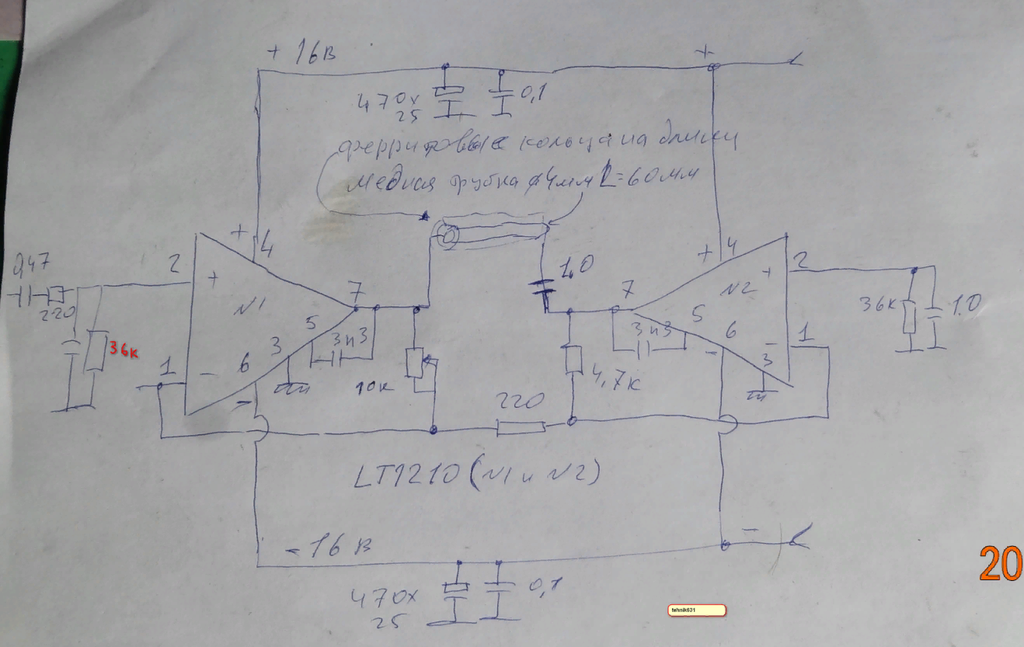 + 16в
+
470х
25
0,1
ферритовые кольца на длину
медная трубка ø4мм L=60мм
+ 4
+ 4
2
047
220
36к
+
N1
7
5
3н3
3
6
1
-
-
10к
1,0
7
N2
+
2
5
3н3
6
-
3
1
-
36к
1.0
4,7к
220
LT1210 (N1 и N2)
- 16 в
-
470х
25
0,1
20
tehnik021